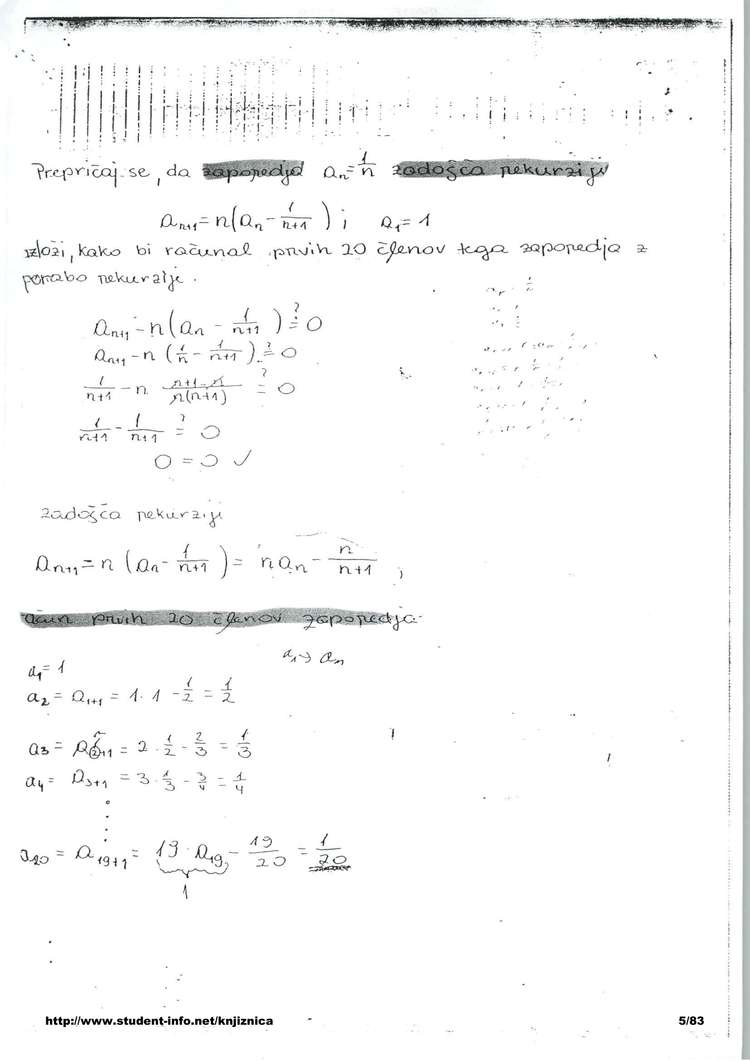 Prepričaj se, da zaporedje aₙ = 1/n zadošča rekurziji
aₙ₊₁ = n(aₙ - 1/(n+1)); a₁ = 1
izloži, kako bi računal prvih 20 členov tega zaporedja z
porabo rekurzije.
aₙ₊₁ - n(aₙ - 1/(n+1)) ?= 0
aₙ₊₁ - n(1/n - 1/(n+1)) ?= 0
1/(n+1) - n (n+1-n)/(n(n+1)) ?= 0
1/(n+1) - 1/(n+1) ?= 0
0 = 0 ✓
zadošča rekurziji
aₙ₊₁ = n(aₙ - 1/(n+1)) = naₙ - n/(n+1) ;
prvih 20 členov zaporedja
a₁ = 1
a₁ → aₙ
a₂ = a₁₊₁ = 1·1 - 1/2 = 1/2
a₃ = a₂₊₁ = 2·1/2 - 2/3 = 1/3
a₄ = a₃₊₁ = 3·1/3 - 3/4 = 1/4
a₂₀ = a₁₉₊₁ = 19·a₁₉ - 19/20 = 1/20
1
http://www.student-info.net/knjiznica 5/83